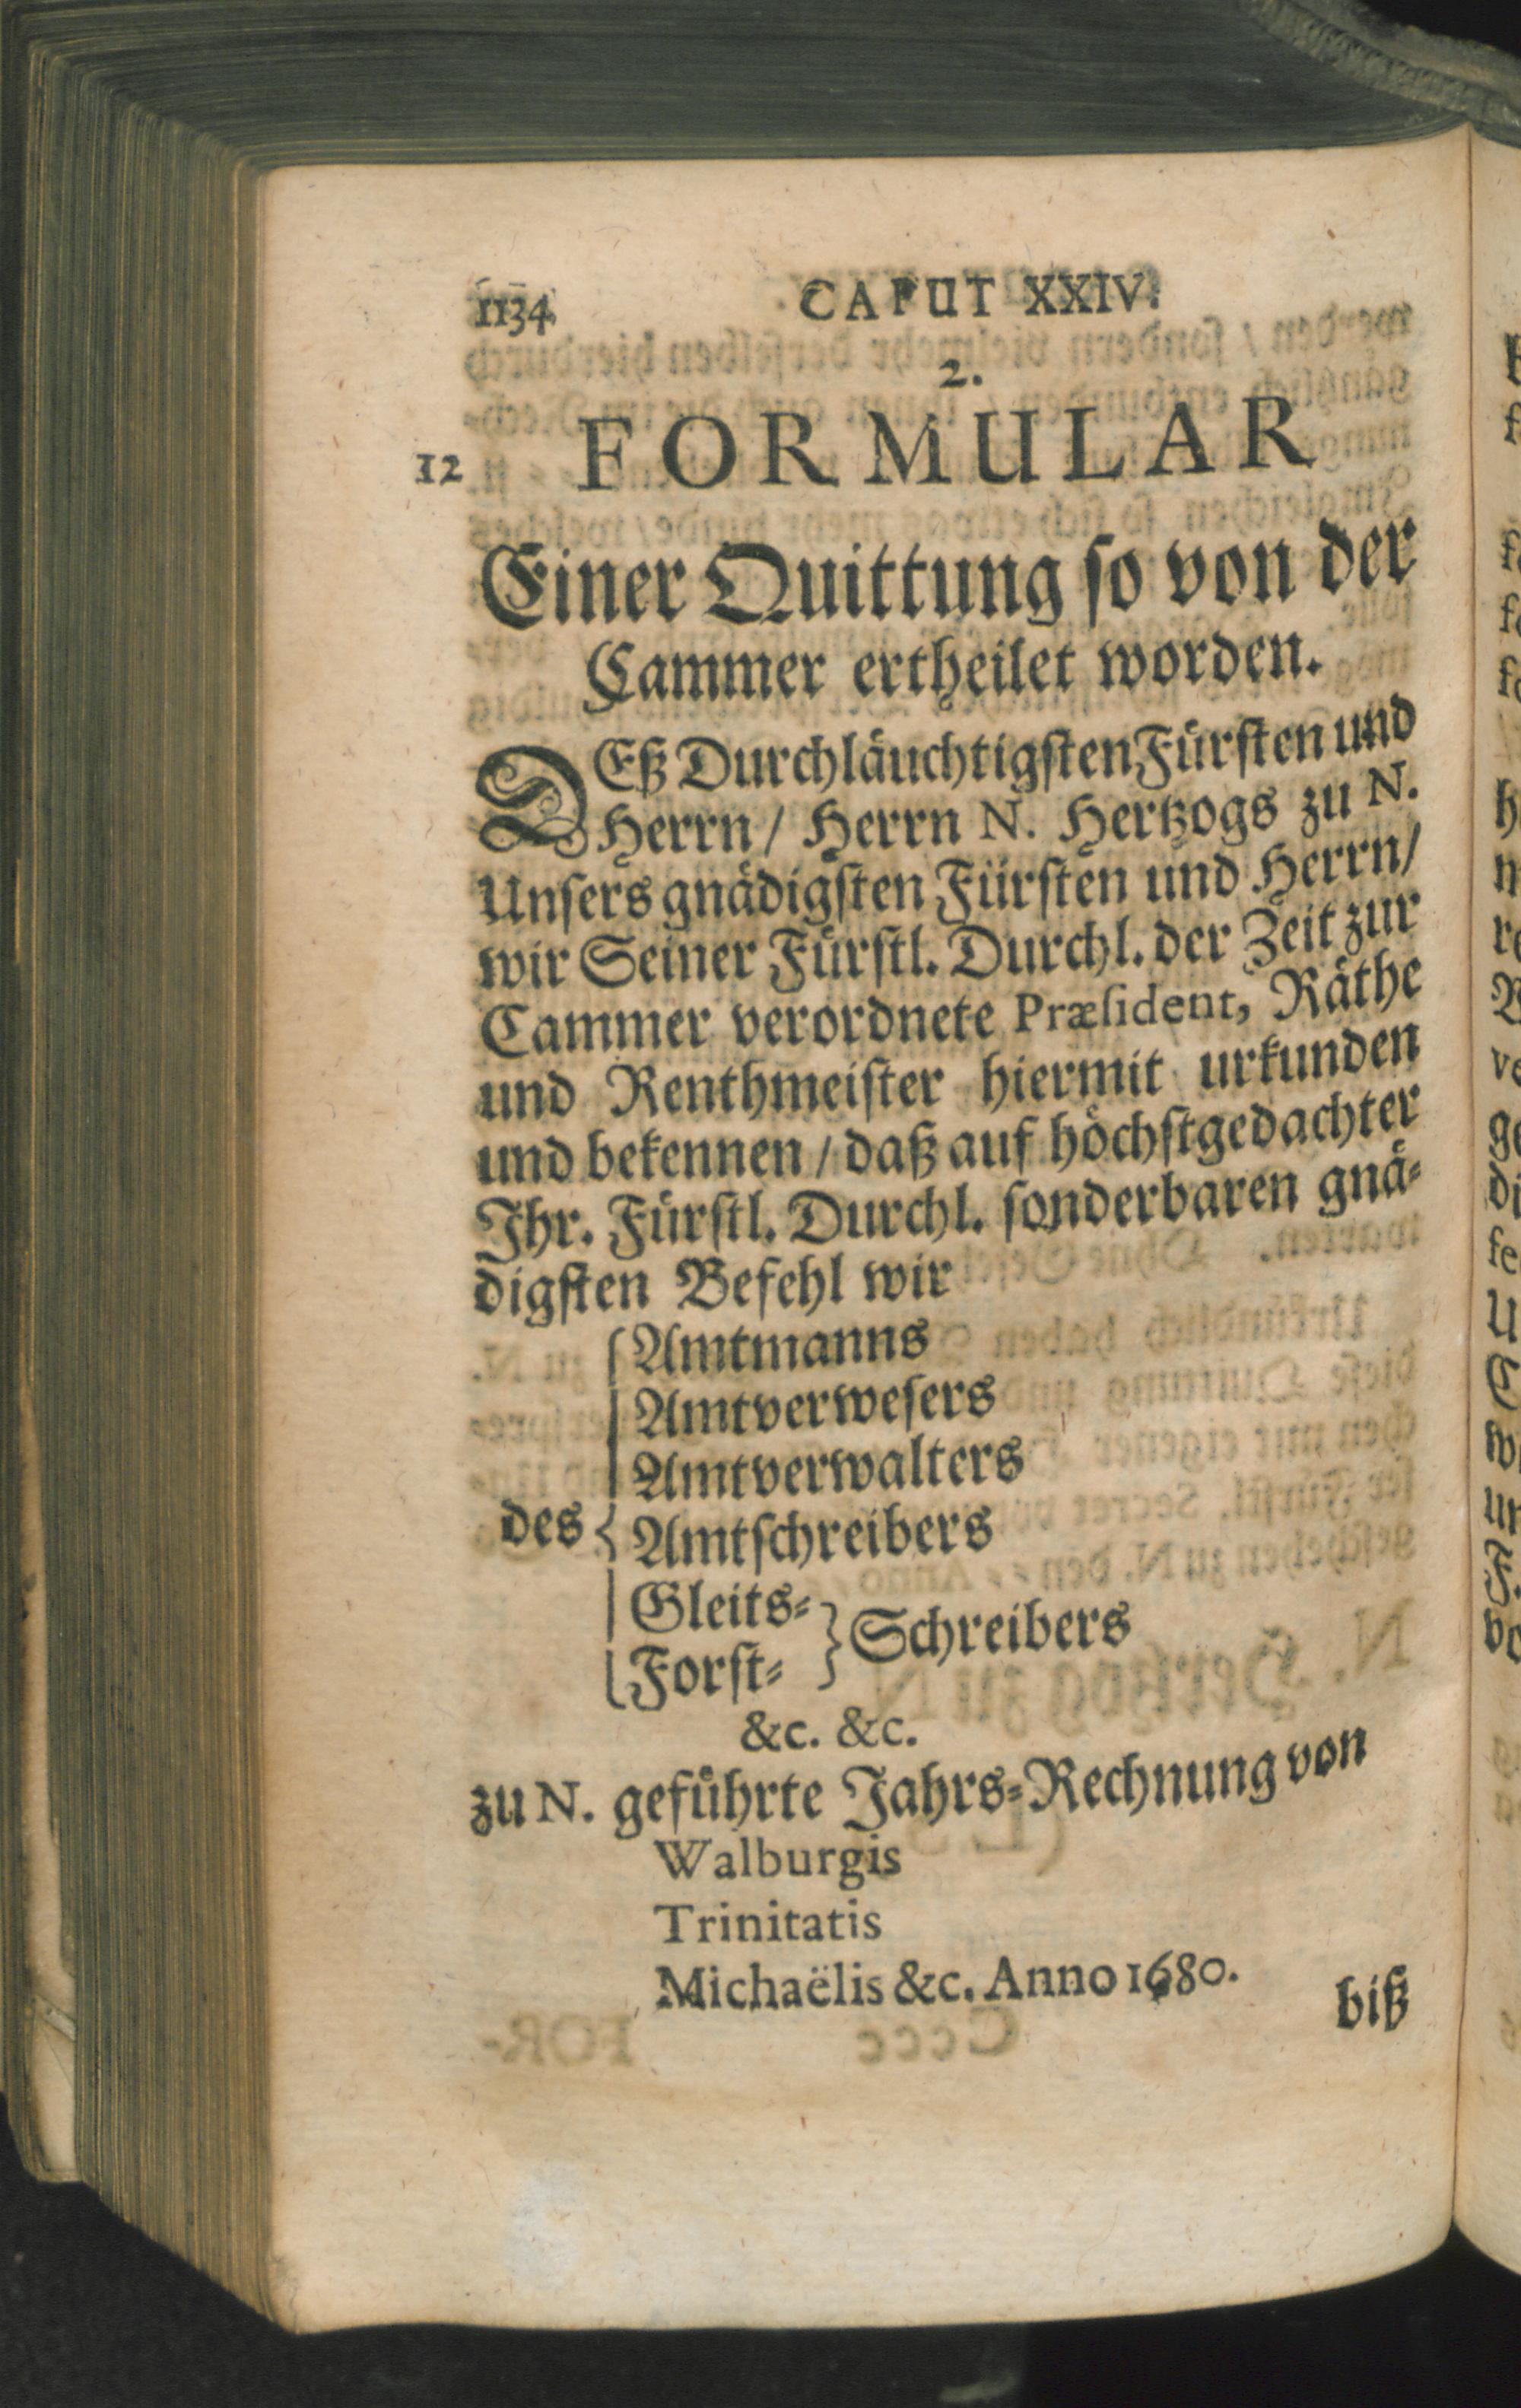 1134 CAPUT XXIV.
2.
12 FORMULAR
Einer Quittung so von der
Cammer ertheilet worden.
DEß Durchläuchtigsten Fürsten und
Herrn / Herrn N. Hertzogs zu N.
Unsers gnädigsten Fürsten und Herrn /
wir Seiner Fürstl. Durchl. der Zeit zur
Cammer verordnete Præsident, Räthe
und Renthmeister hiermit urkunden
und bekennen / daß auf höchstgedachter
Ihr. Fürstl. Durchl. sonderbaren gnä-
digsten Befehl wir
Amtmanns
Amtverwesers
Amtverwalters
des { Amtschreibers
Gleits-
Forst- } Schreibers
&c. &c.
zu N. geführte Jahrs-Rechnung von
Walburgis
Trinitatis
Michaëlis &c. Anno 1680.
biß